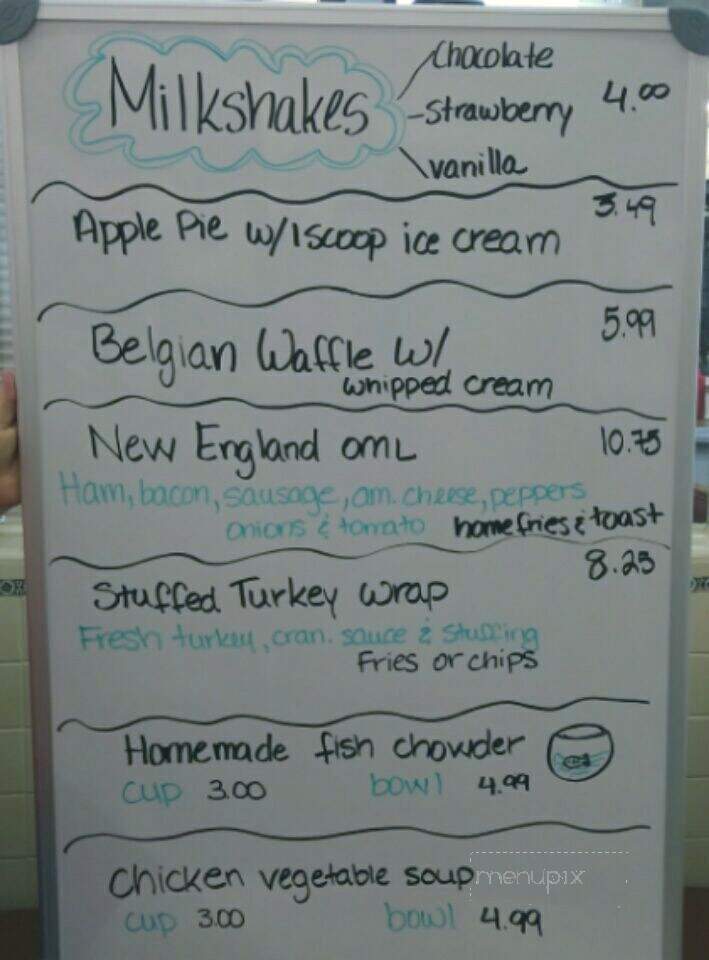 Chocolate
Milkshakes -Strawberry 4.00
vanilla
3.49
Apple Pie w/1 scoop ice cream
Belgian Waffle w/ 5.99
whipped cream
New England omL 10.75
Ham, bacon, sausage, am. cheese, peppers
onions & tomato home fries & toast
8.25
Stuffed Turkey wrap
Fresh turkey, cran. sauce & stuffing
Fries or chips
Homemade fish chowder
cup 3.00 bowl 4.99
Chicken vegetable soup
menupix
cup 3.00 bowl 4.99